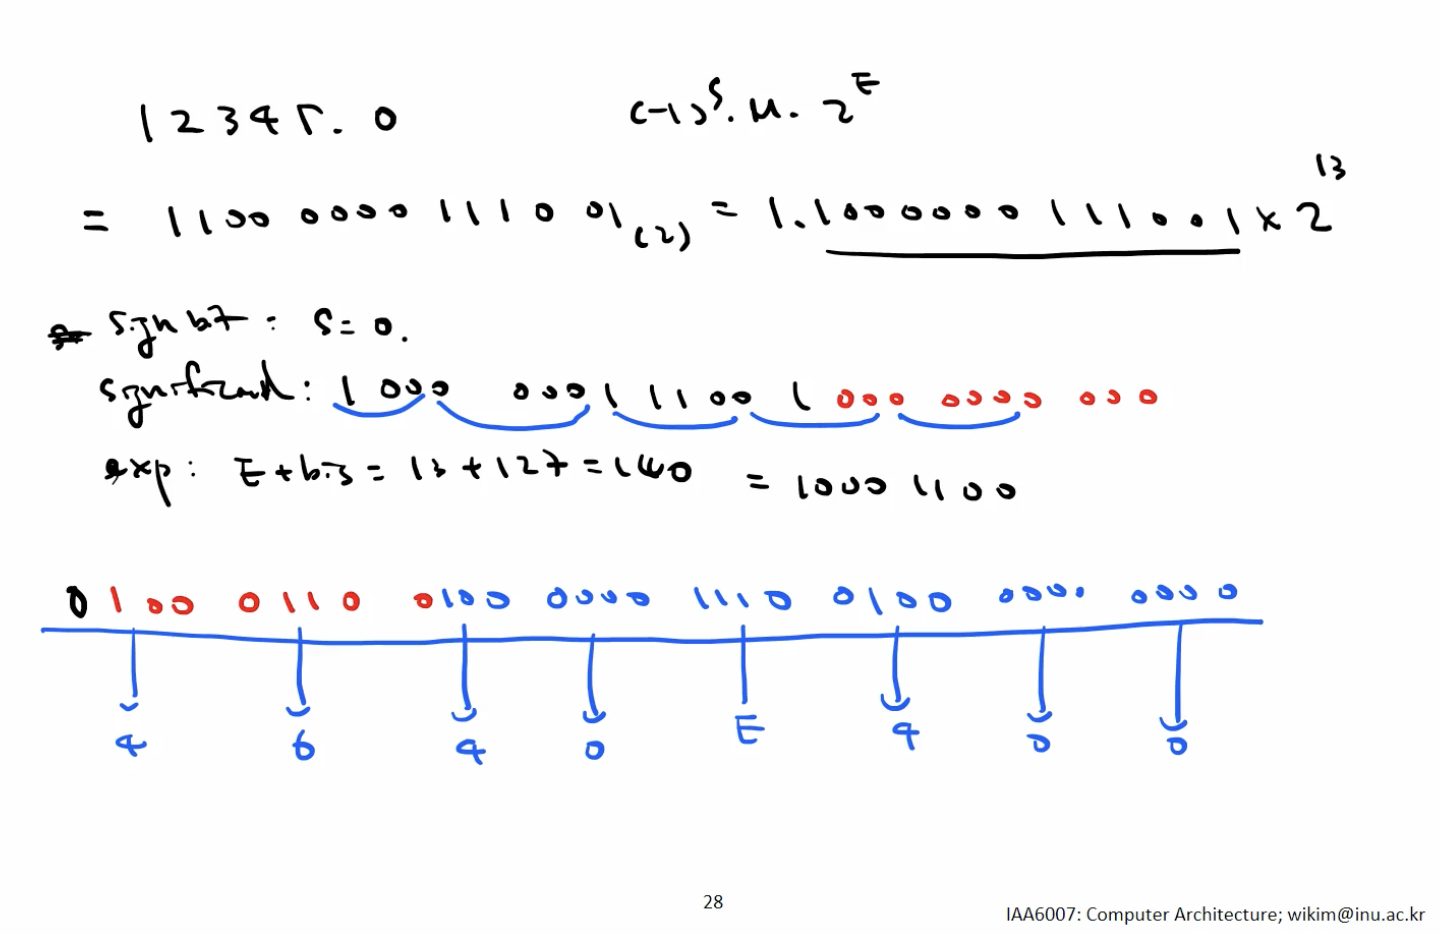 12345.0 (-1)^S . M . 2^E
= 1100 0000 1110 01(2) = 1.1000000111001 x 2^13
sign bit : S = 0.
significand : 1 000 000 1 1 1 00 1 000 0000 000
exp : E + bias = 13 + 127 = 140 = 1000 1100
0 100 0110 0100 0000 1110 0100 0000 0000
4 6 4 0 E 4 0 0
28
IAA6007: Computer Architecture; wikim@inu.ac.kr